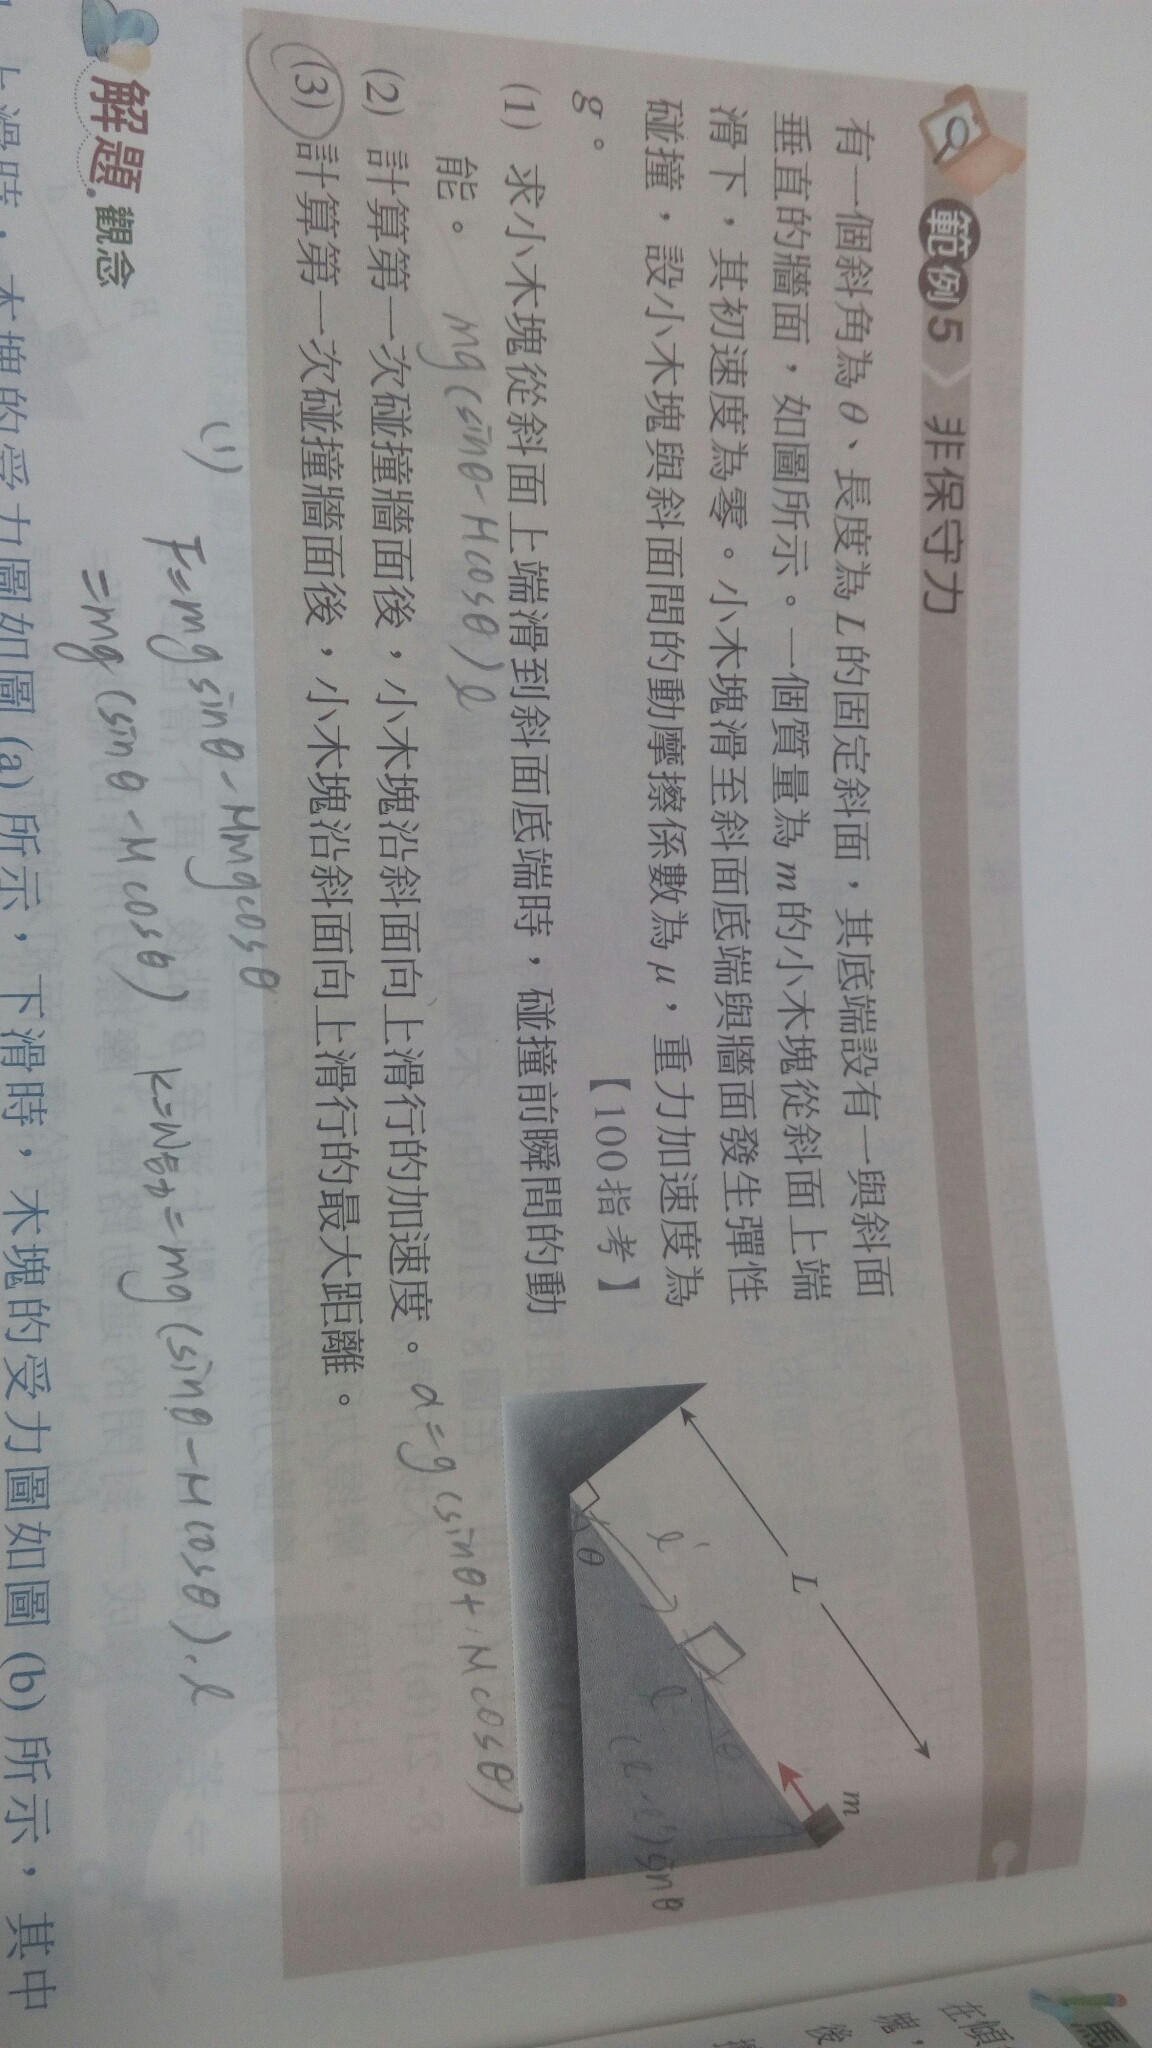 範例5 非保守力
有一個斜角為θ、長度為L的固定斜面，其底端設有一與斜面
垂直的牆面，如圖所示。一個質量為m的小木塊從斜面上端
滑下，其初速度為零。小木塊滑至斜面底端與牆面發生彈性
碰撞，設小木塊與斜面間的動摩擦係數為μ，重力加速度為
g。
【100指考】
(1) 求小木塊從斜面上端滑到斜面底端時，碰撞前瞬間的動
能。 mg(sinθ-Mcosθ)l
(2) 計算第一次碰撞牆面後，小木塊沿斜面向上滑行的加速度。 a=g(sinθ+Mcosθ)
(3) 計算第一次碰撞牆面後，小木塊沿斜面向上滑行的最大距離。
L
m
θ
l'
l
θ
(l-l')sinθ
解題 觀念
(1) F=mgsinθ-Mmgcosθ
=mg(sinθ-Mcosθ) k=W合=mg(sinθ-Mcosθ)·l
上滑時，木塊的受力圖如圖 (a) 所示，下滑時，木塊的受力圖如圖 (b) 所示，其中
馬
在傾
塊，
後